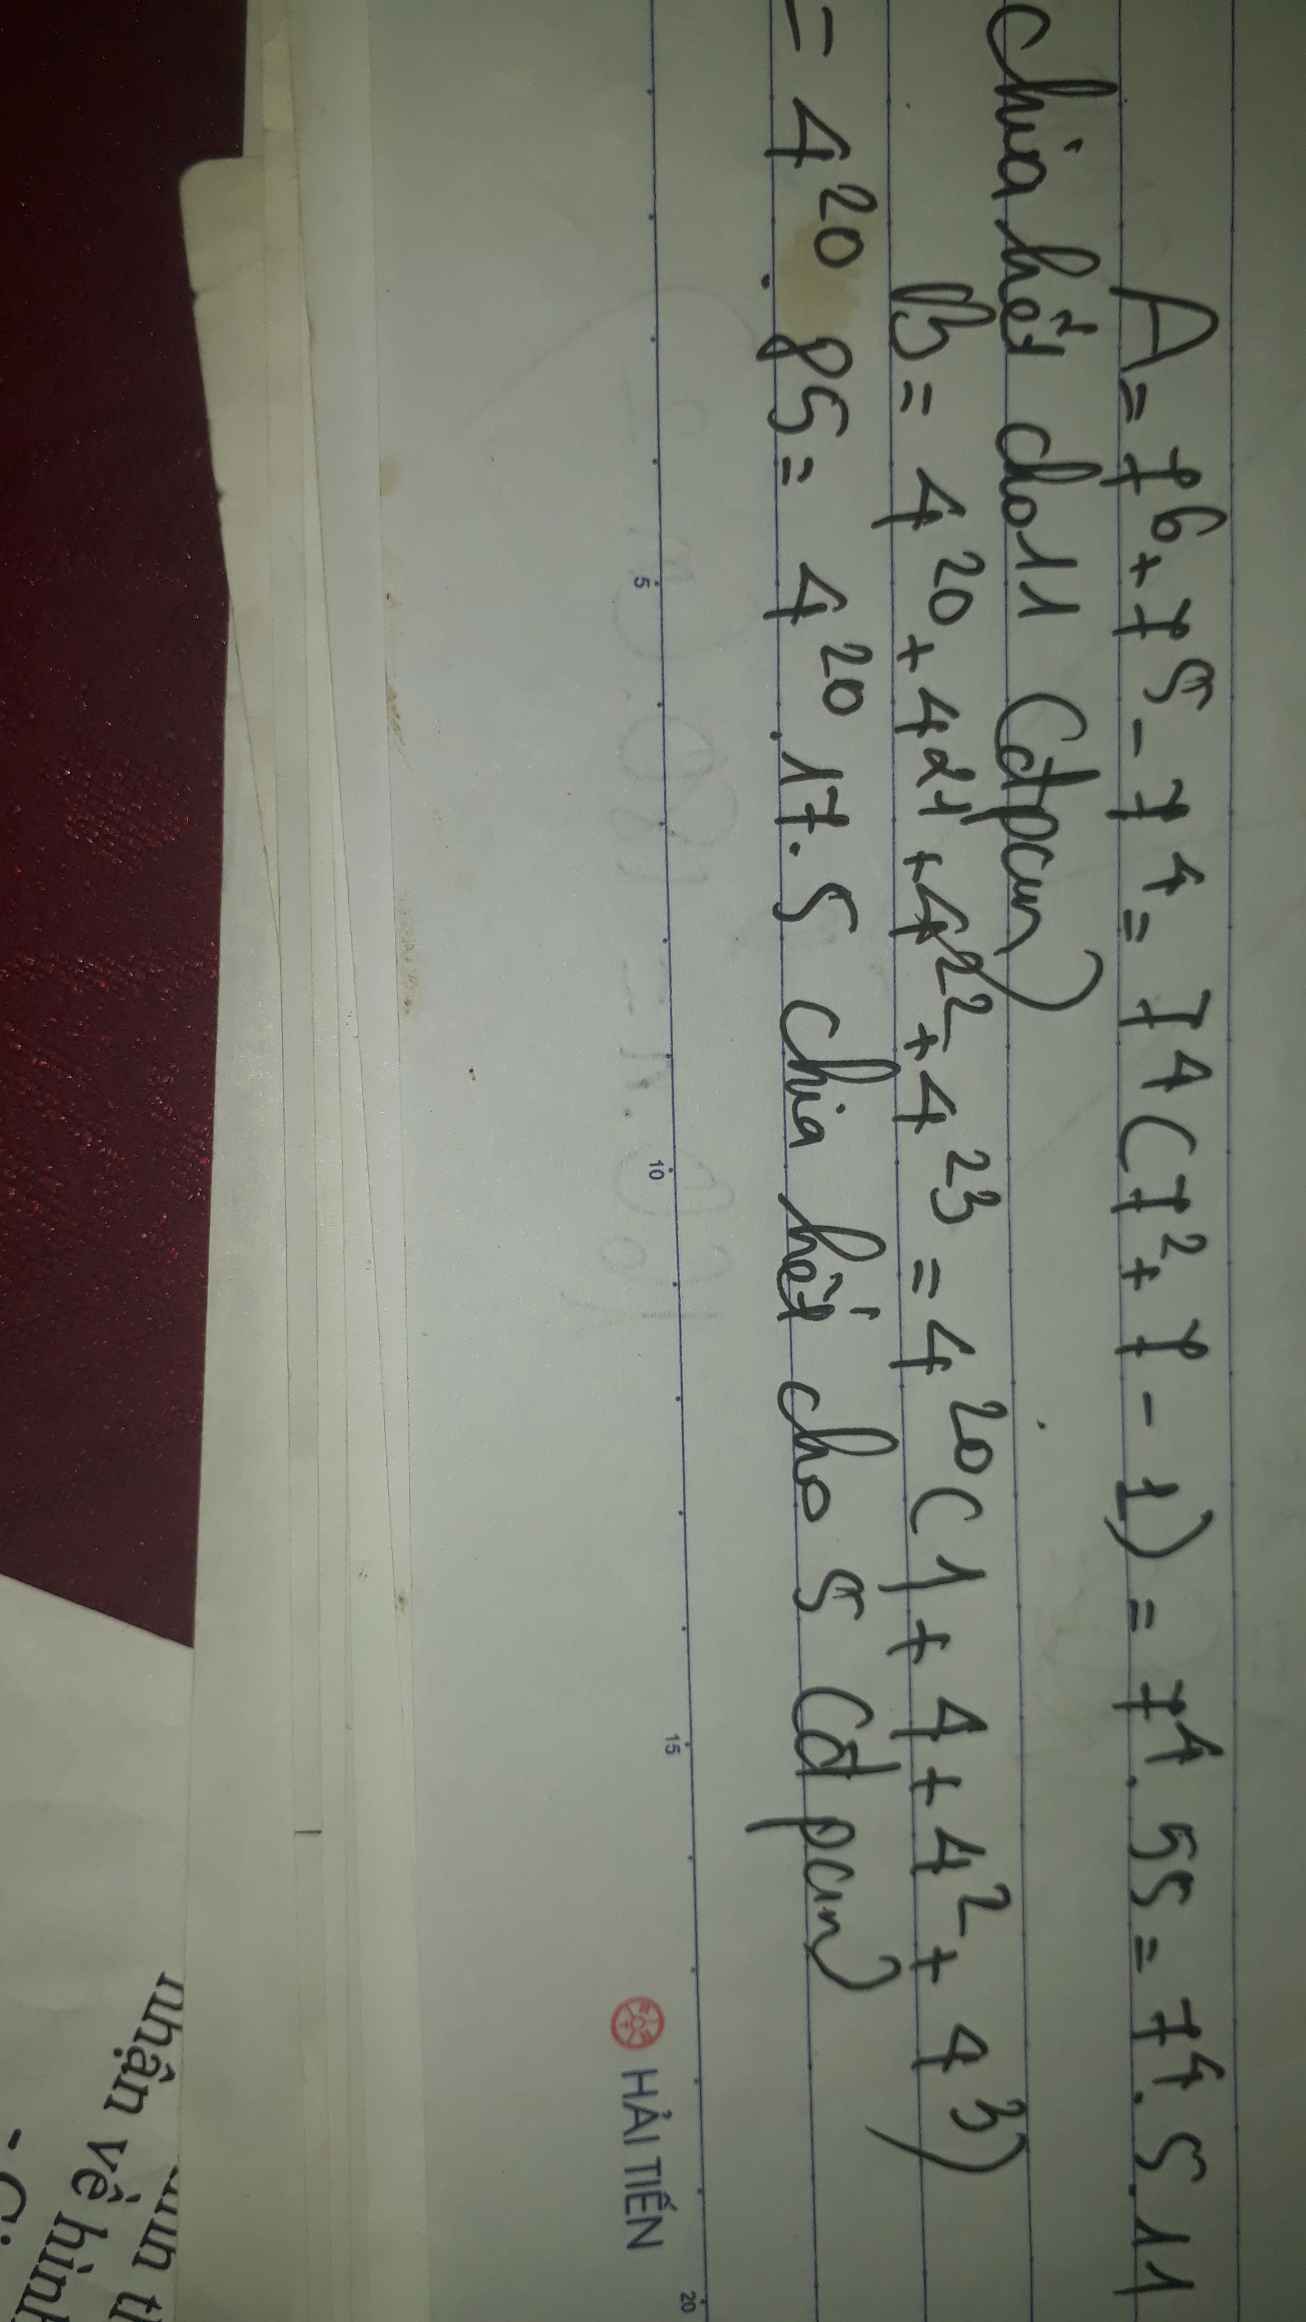 A = 7⁶ + 7⁵ - 7⁴ = 7⁴(7² + 7 - 1) = 7⁴ . 55 = 7⁴ . 5 . 11
chia hết cho 11 (đpcm)
B = 4²⁰ + 4²¹ + 4²² + 4²³ = 4²⁰(1 + 4 + 4² + 4³)
= 4²⁰ . 85 = 4²⁰ . 17 . 5 chia hết cho 5 (đpcm)
5 10 15 20
HẢI TIẾN
nhận về hình